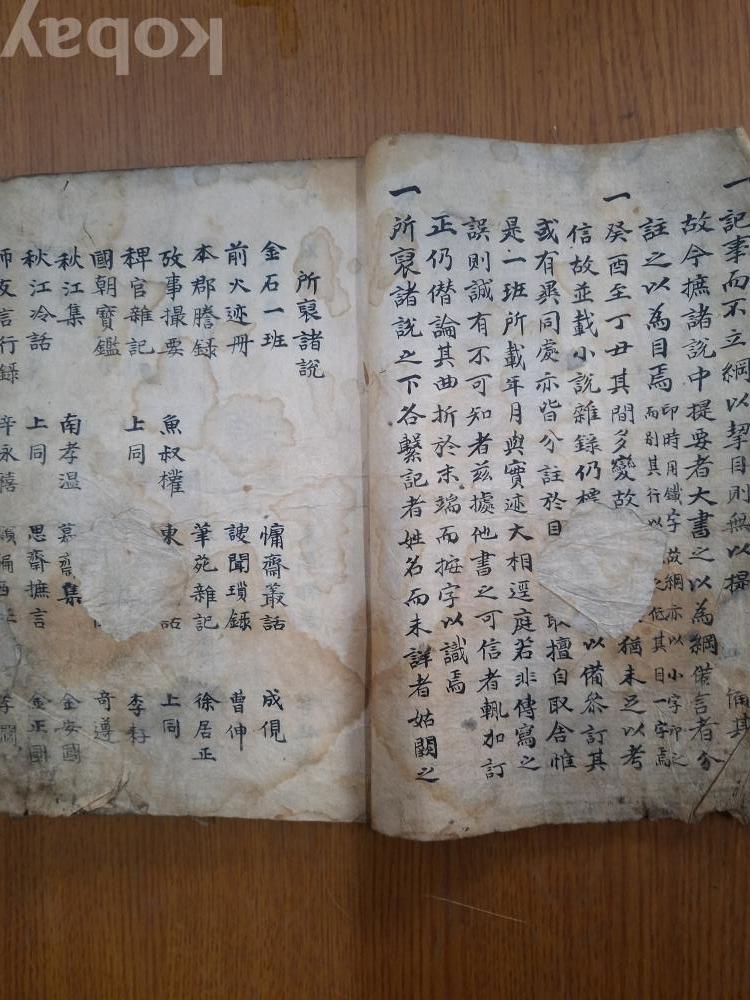 kobay
一記事而不立綱以挈目則無以提
故今摭諸說中提要者大書之以爲綱俻言者分
註之以爲目焉 印時用鐵字故綱亦以小字印之
而別其行以 之低其目一字焉
一癸酉至丁丑其間多變故 猶未足以考
信故並載小說雜錄仍標 以備叅訂其
或有異同處亦皆分註於目 取擅自取舍惟
是一班所載年月與實迹大相逕庭若非傳寫之
誤則誠有不可知者茲據他書之可信者輒加訂
正仍僭論其曲折於末端而按字以識焉
一所裒諸說之下各繫記者姓名而未詳者姑闕之
所裒諸說
金石一班 慵齋叢話 成俔
前人迹册 謏聞瑣錄 曹伸
本郡謄錄 筆苑雜記 徐居正
攷事撮要 魚叔權 東 話 上同
稗官雜記 上同 李耔
國朝寶鑑 奇遵
秋江集 南孝溫 慕齋集 金安國
秋江冷話 上同 思齋摭言 金正國
師友言行錄 辛永禧